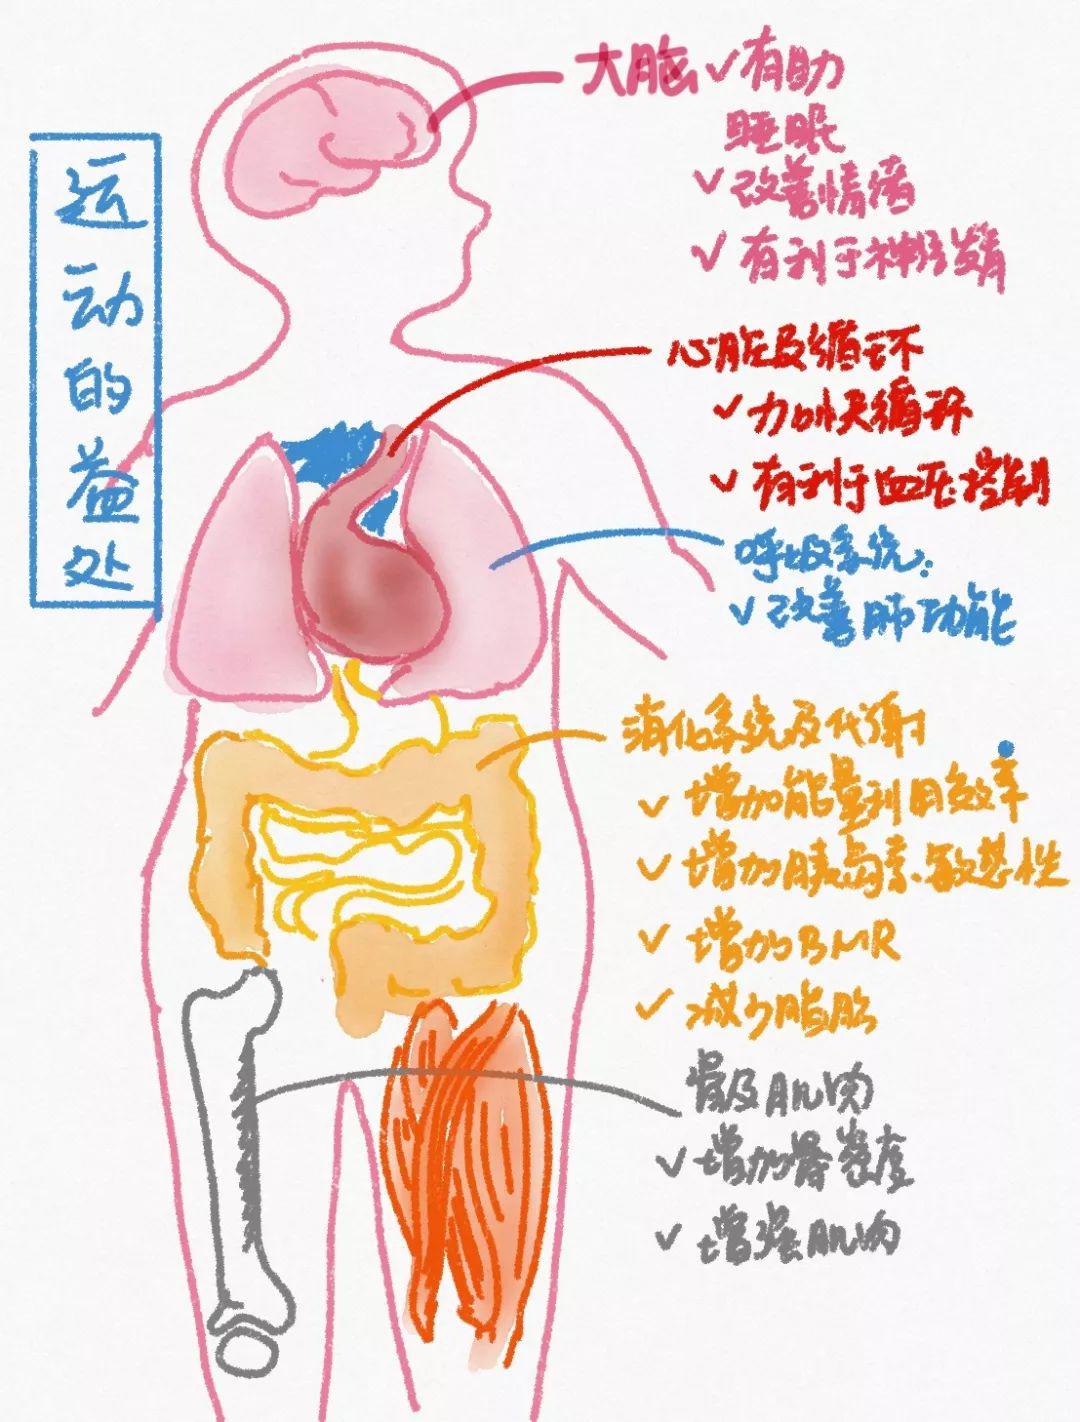 运动的益处
大脑 ✓有助
睡眠
✓改善情绪
✓有利于神经发育
心脏及循环
✓加快循环
✓有利于血压控制
呼吸系统:
✓改善肺功能
消化系统及代谢
✓增加能量利用效率
✓增加胰岛素敏感性
✓增加BMR
✓减少脂肪
骨及肌肉
✓增加骨密度
✓增强肌肉